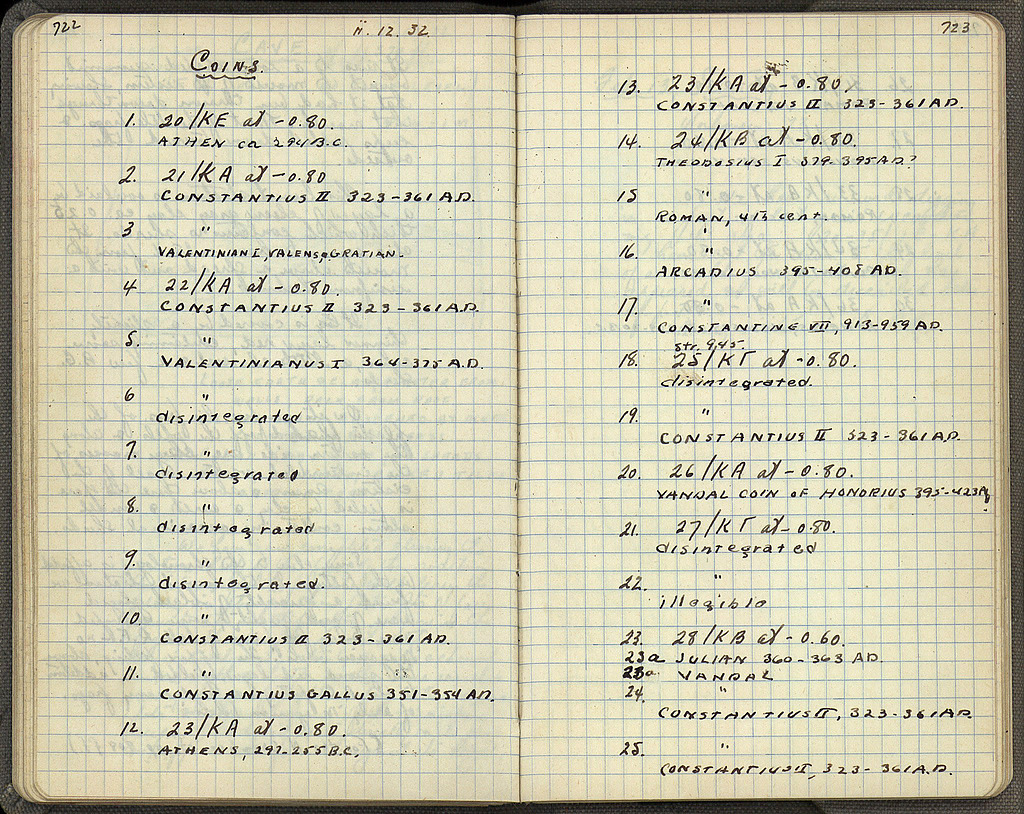 722
11.12.32
COINS.
1. 20/KE at -0.80.
ATHEN ca 294 B.C.
2. 21/KA at -0.80
CONSTANTIUS II 323-361 A.D.
3 "
VALENTINIAN I, VALENS, GRATIAN.
4 22/KA at -0.80.
CONSTANTIUS II 323-361 A.D.
5. "
VALENTINIANUS I 364-375 A.D.
6 "
disintegrated
7. "
disintegrated
8. "
disintegrated
9. "
disintegrated.
10. "
CONSTANTIUS II 323-361 AD.
11. "
CONSTANTIUS GALLUS 351-354 AD.
12. 23/KA at -0.80.
ATHENS, 297-255 B.C.
723
13. 23/KA at -0.80.
CONSTANTIUS II 323-361 AD.
14. 24/KB at -0.80.
THEODOSIUS I 379-395 AD?
15 "
ROMAN, 4th cent.
16. "
ARCADIUS 395-408 AD.
17. "
CONSTANTINE VII, 913-959 AD.
str. 945.
18. 25/KΓ at -0.80.
disintegrated.
19. "
CONSTANTIUS II 323-361 AD.
20. 26/KA at -0.80.
VANDAL COIN OF HONORIUS 395-423 A
21. 27/KΓ at -0.80.
disintegrated
22. "
illegible
23. 28/KB at -0.60.
23a JULIAN 360-363 AD.
23a VANDAL
24. "
CONSTANTIUS II, 323-361 AD.
25. "
CONSTANTIUS II, 323-361 A.D.